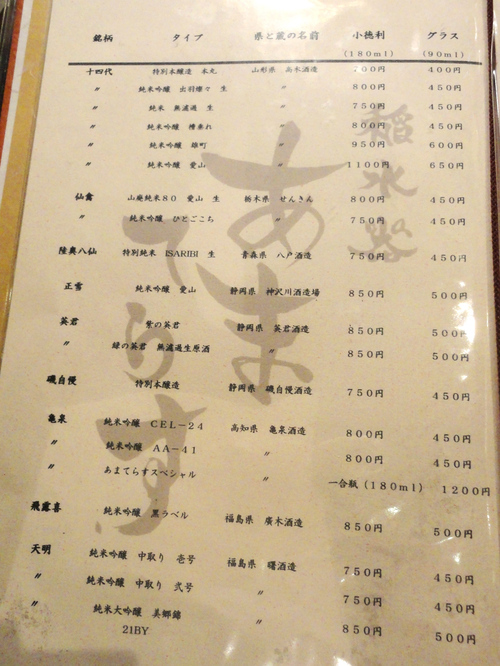 銘柄 タイプ 県と蔵の名前 小徳利 グラス
(180ml) (90ml)
十四代 特別本醸造 本丸 山形県 高木酒造 700円 400円
〃 純米吟醸 出羽燦々 生 〃 800円 450円
〃 純米 無濾過 生 〃 750円 450円
〃 純米吟醸 槽垂れ 〃 800円 450円
〃 純米吟醸 雄町 〃 950円 600円
〃 純米吟醸 愛山 〃 1100円 650円
仙禽 山廃純米80 愛山 生 栃木県 せんきん 800円 450円
〃 純米吟醸 ひとごこち 〃 750円 450円
陸奥八仙 特別純米 ISARIBI 生 青森県 八戸酒造 750円 450円
正雪 純米吟醸 愛山 静岡県 神沢川酒造場 850円 500円
英君 紫の英君 静岡県 英君酒造 850円 500円
〃 緑の英君 無濾過生原酒 〃 850円 500円
磯自慢 特別本醸造 静岡県 磯自慢酒造 750円 450円
亀泉 純米吟醸 CEL-24 高知県 亀泉酒造 800円 450円
〃 純米吟醸 AA-41 〃 800円 450円
〃 あまてらすスペシャル 〃 一合瓶(180ml) 1200円
飛露喜 純米吟醸 黒ラベル 福島県 廣木酒造 850円 500円
天明 純米吟醸 中取り 壱号 福島県 曙酒造 750円 450円
〃 純米吟醸 中取り 弐号 〃 750円 450円
〃 純米大吟醸 美郷錦 〃 850円 500円
21BY
あまてらす